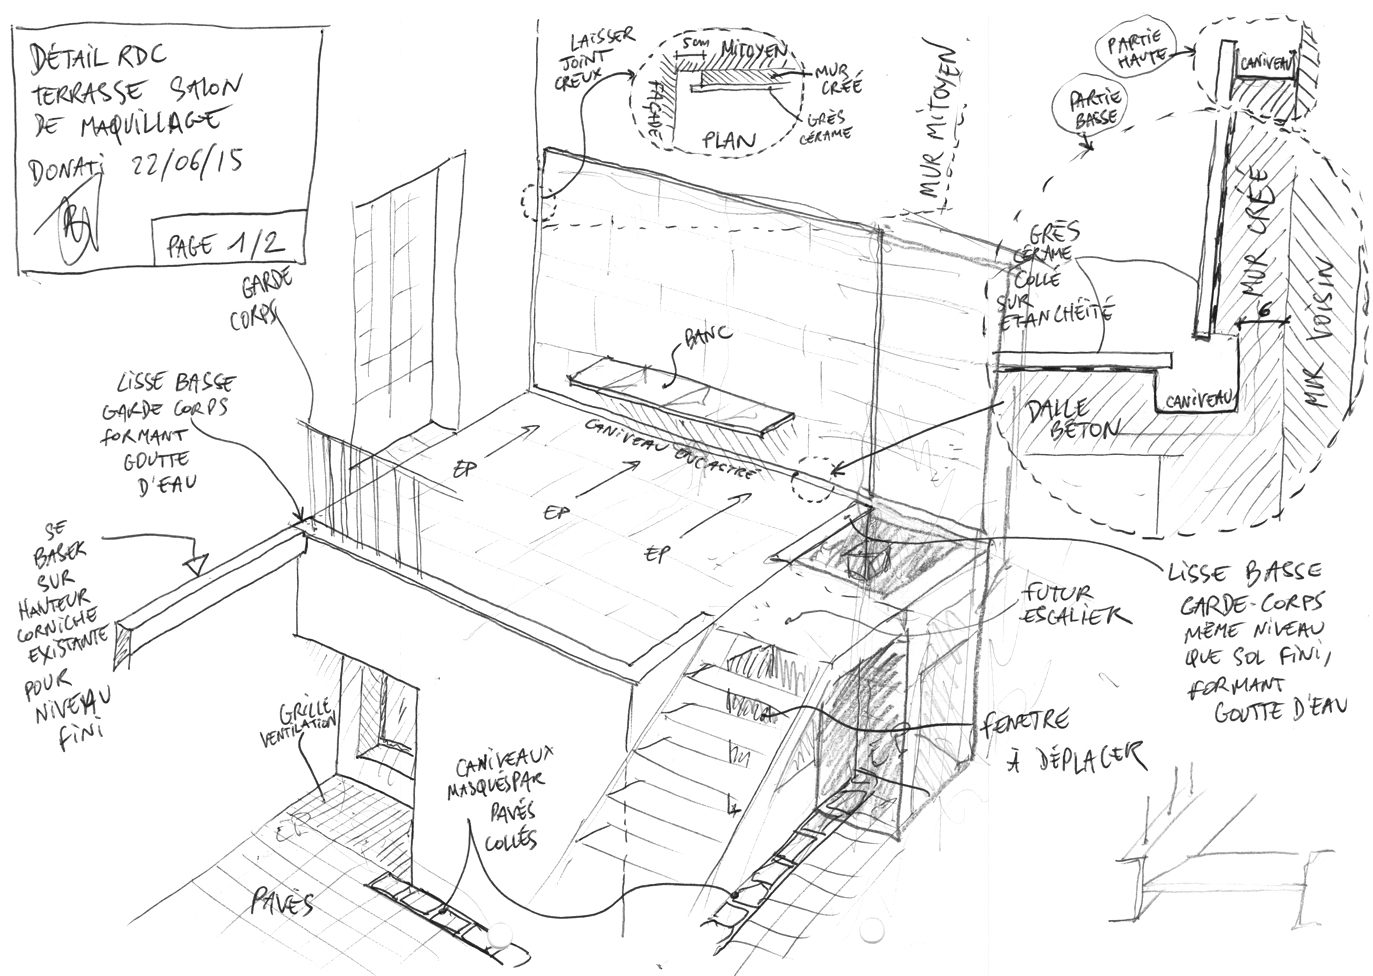 DÉTAIL RDC
TERRASSE SALON
DE MAQUILLAGE
DONATI 22/06/15
PAGE 1/2
LAISSER
JOINT
CREUX
5cm
MITOYEN
FAÇADE
MUR
CRÉÉ
GRÈS
CÉRAME
PLAN
MUR MITOYEN
PARTIE
HAUTE
PARTIE
BASSE
CANIVEAU
MUR CRÉÉ
MUR VOISIN
6
GRÈS
CÉRAME
COLLÉ
SUR
ETANCHÉITÉ
CANIVEAU
DALLE
BÉTON
GARDE
CORPS
LISSE BASSE
GARDE CORPS
FORMANT
GOUTTE
D'EAU
SE
BASER
SUR
HAUTEUR
CORNICHE
EXISTANTE
POUR
NIVEAU
FINI
BANC
CANIVEAU ENCASTRÉ
EP
EP
EP
FUTUR
ESCALIER
LISSE BASSE
GARDE-CORPS
MÊME NIVEAU
QUE SOL FINI,
FORMANT
GOUTTE D'EAU
FENETRE
À DÉPLACER
GRILLE
VENTILATION
CANIVEAUX
MASQUÉS PAR
PAVÉS
COLLÉS
EP
PAVÉS